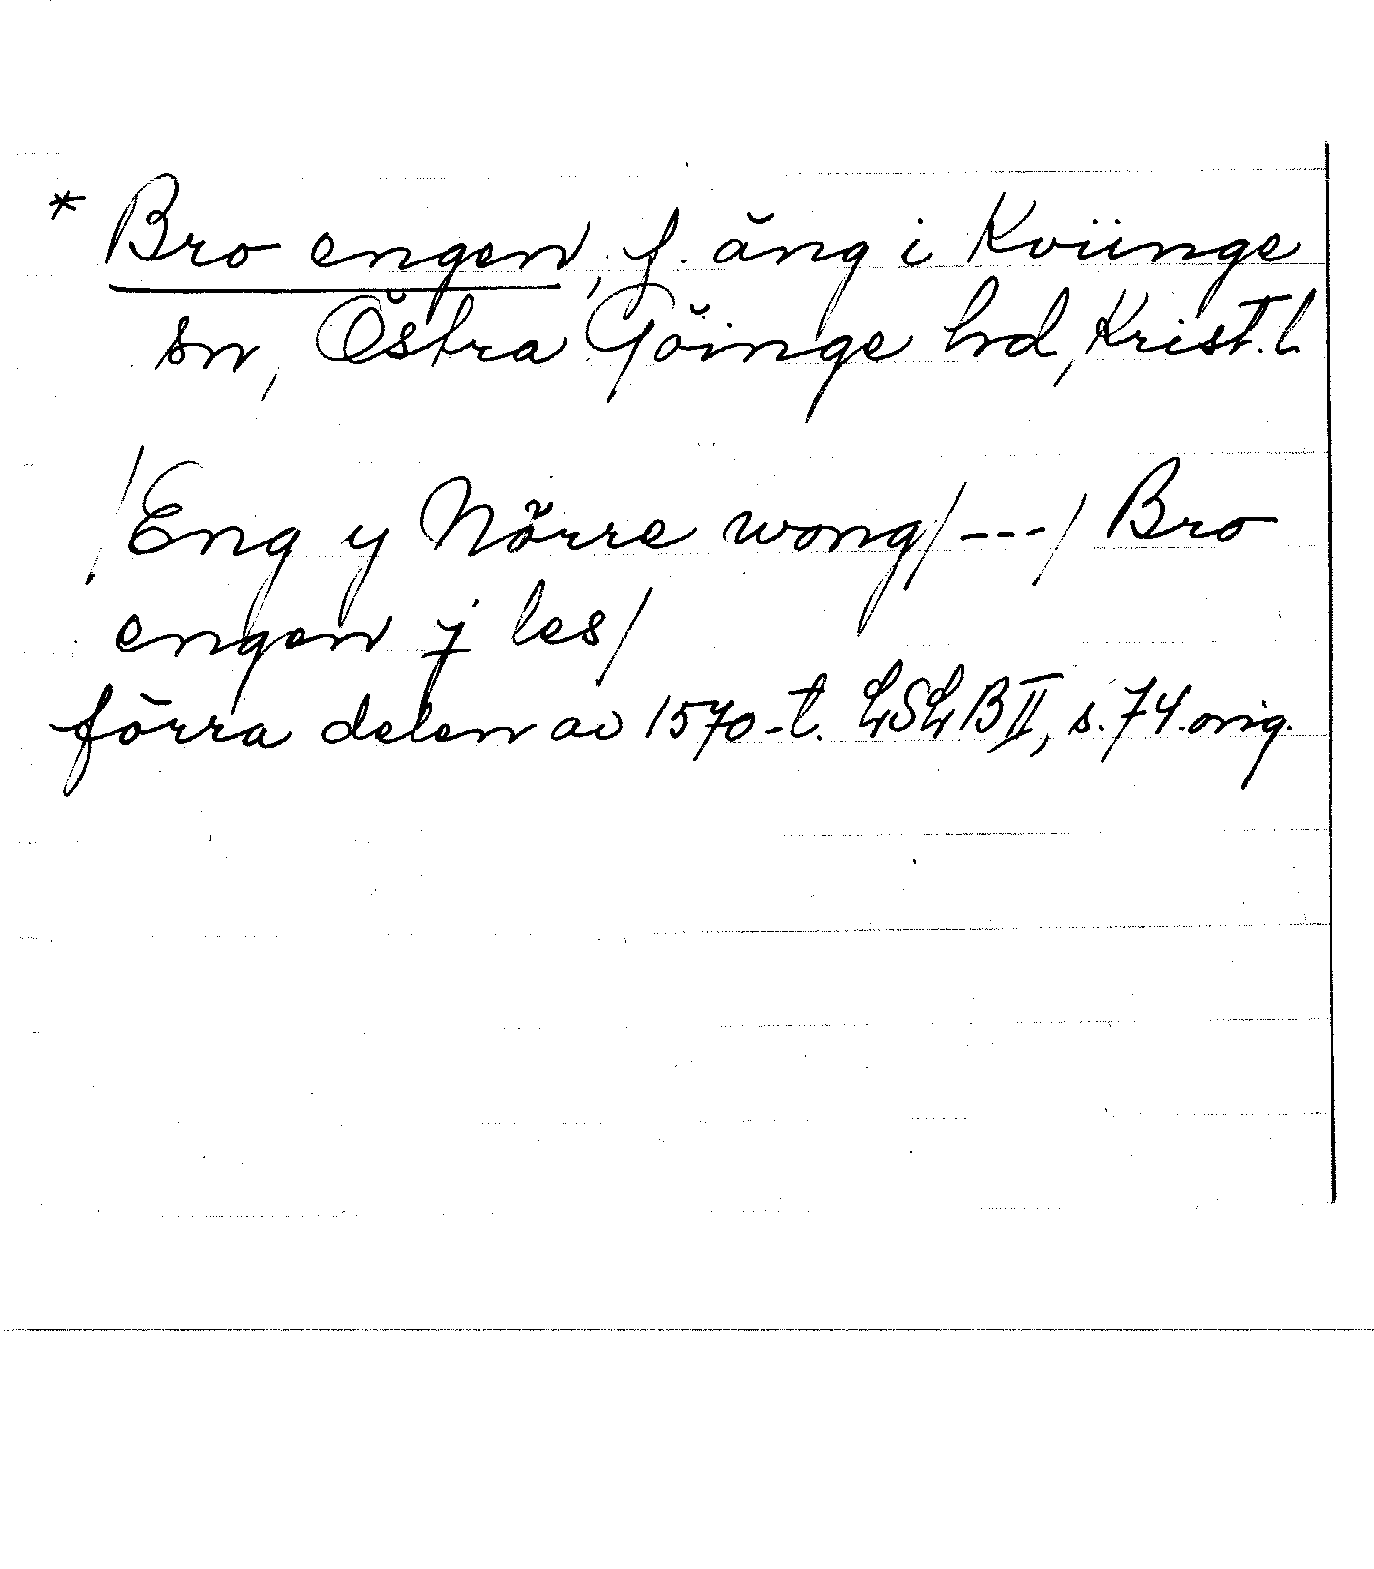 * Bro engen, f. äng i Kviinge
sn, Östra Göinge hd, Krist. l.
/Eng y Nörre wong/---/ Bro
engen j les/
förra delen av 1570-t. LSLB II, s. 74. orig.